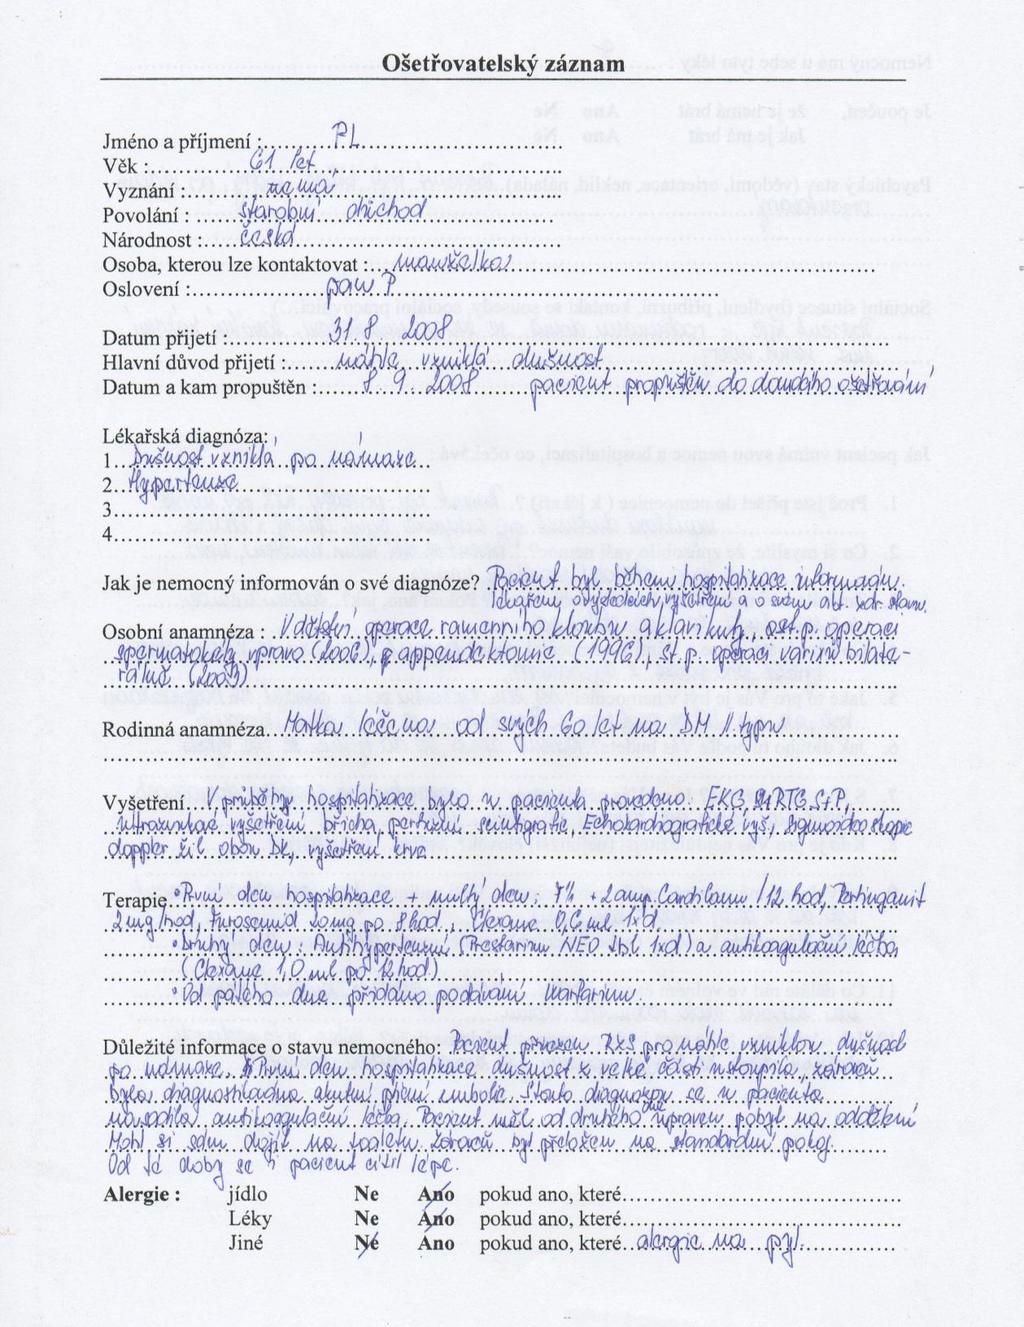 Ošetřovatelský záznam
Jméno a příjmení : PL
Věk : 61 let
Vyznání : nemá
Povolání : starobní důchod
Národnost : česká
Osoba, kterou lze kontaktovat : manželka
Oslovení : pan P
Datum přijetí : 31. 8. 2008
Hlavní důvod přijetí : náhle vzniklá dušnost
Datum a kam propuštěn : 8. 9. 2008 pacient propuštěn do domácího ošetřování
Lékařská diagnóza:
1. Dušnost vzniklá po námaze
2. Hypertenze
3.
4.
Jak je nemocný informován o své diagnóze? Pacient byl během hospitalizace informován
lékařem o výsledcích vyšetření a o svém zdr. stavu.
Osobní anamnéza : V dětství operace ramenního kloubu a klavikuly, st. p. operaci
spermatokely vpravo (2006), p appendektomie (1996), st. p. operaci varixů bilate-
rálně
Rodinná anamnéza Matka léčena od svých 60 let na DM II. typu
Vyšetření. V průběhu hospitalizace bylo u pacienta provedeno: EKG, RTG S+P,
ultrazvukové vyšetření břicha, perfuzní scintigrafie, Echokardiografické vyš., Sigmoideoskopie
doppler žil obou DK, vyšetření krve
Terapie. • První den hospitalizace + nultý den: + 2 amp. Cardilanu /12 hod, Perlinganit
2 mg/hod, Furosemid 20 mg po 8 hod, Clexane 0,6 ml
• Druhý den: Antihypertenzní (Prestarium NEO tbl 1xd) a antikoagulační léčba
(Clexane 1,0 ml po 12 hod)
• Od pátého dne přidáno podávání Warfarinu.
Důležité informace o stavu nemocného: Pacient přivezen RZS pro náhle vzniklou dušnost
po námaze. První den hospitalizace dušnost z velké části ustoupila, zároveň
byla diagnostikována akutní plicní embolie. S touto diagnózou se u pacienta
nasadila antikoagulační léčba. Pacient měl od druhého dne upraven pobyt na oddělení
Mohl si sám dojít na toaletu. Zároveň byl přeložen na standardní pokoj.
Od té doby se pacient cítil lépe.
Alergie : jídlo Ne Ano pokud ano, které
Léky Ne Ano pokud ano, které
Jiné Ne Ano pokud ano, které alergie na pyl